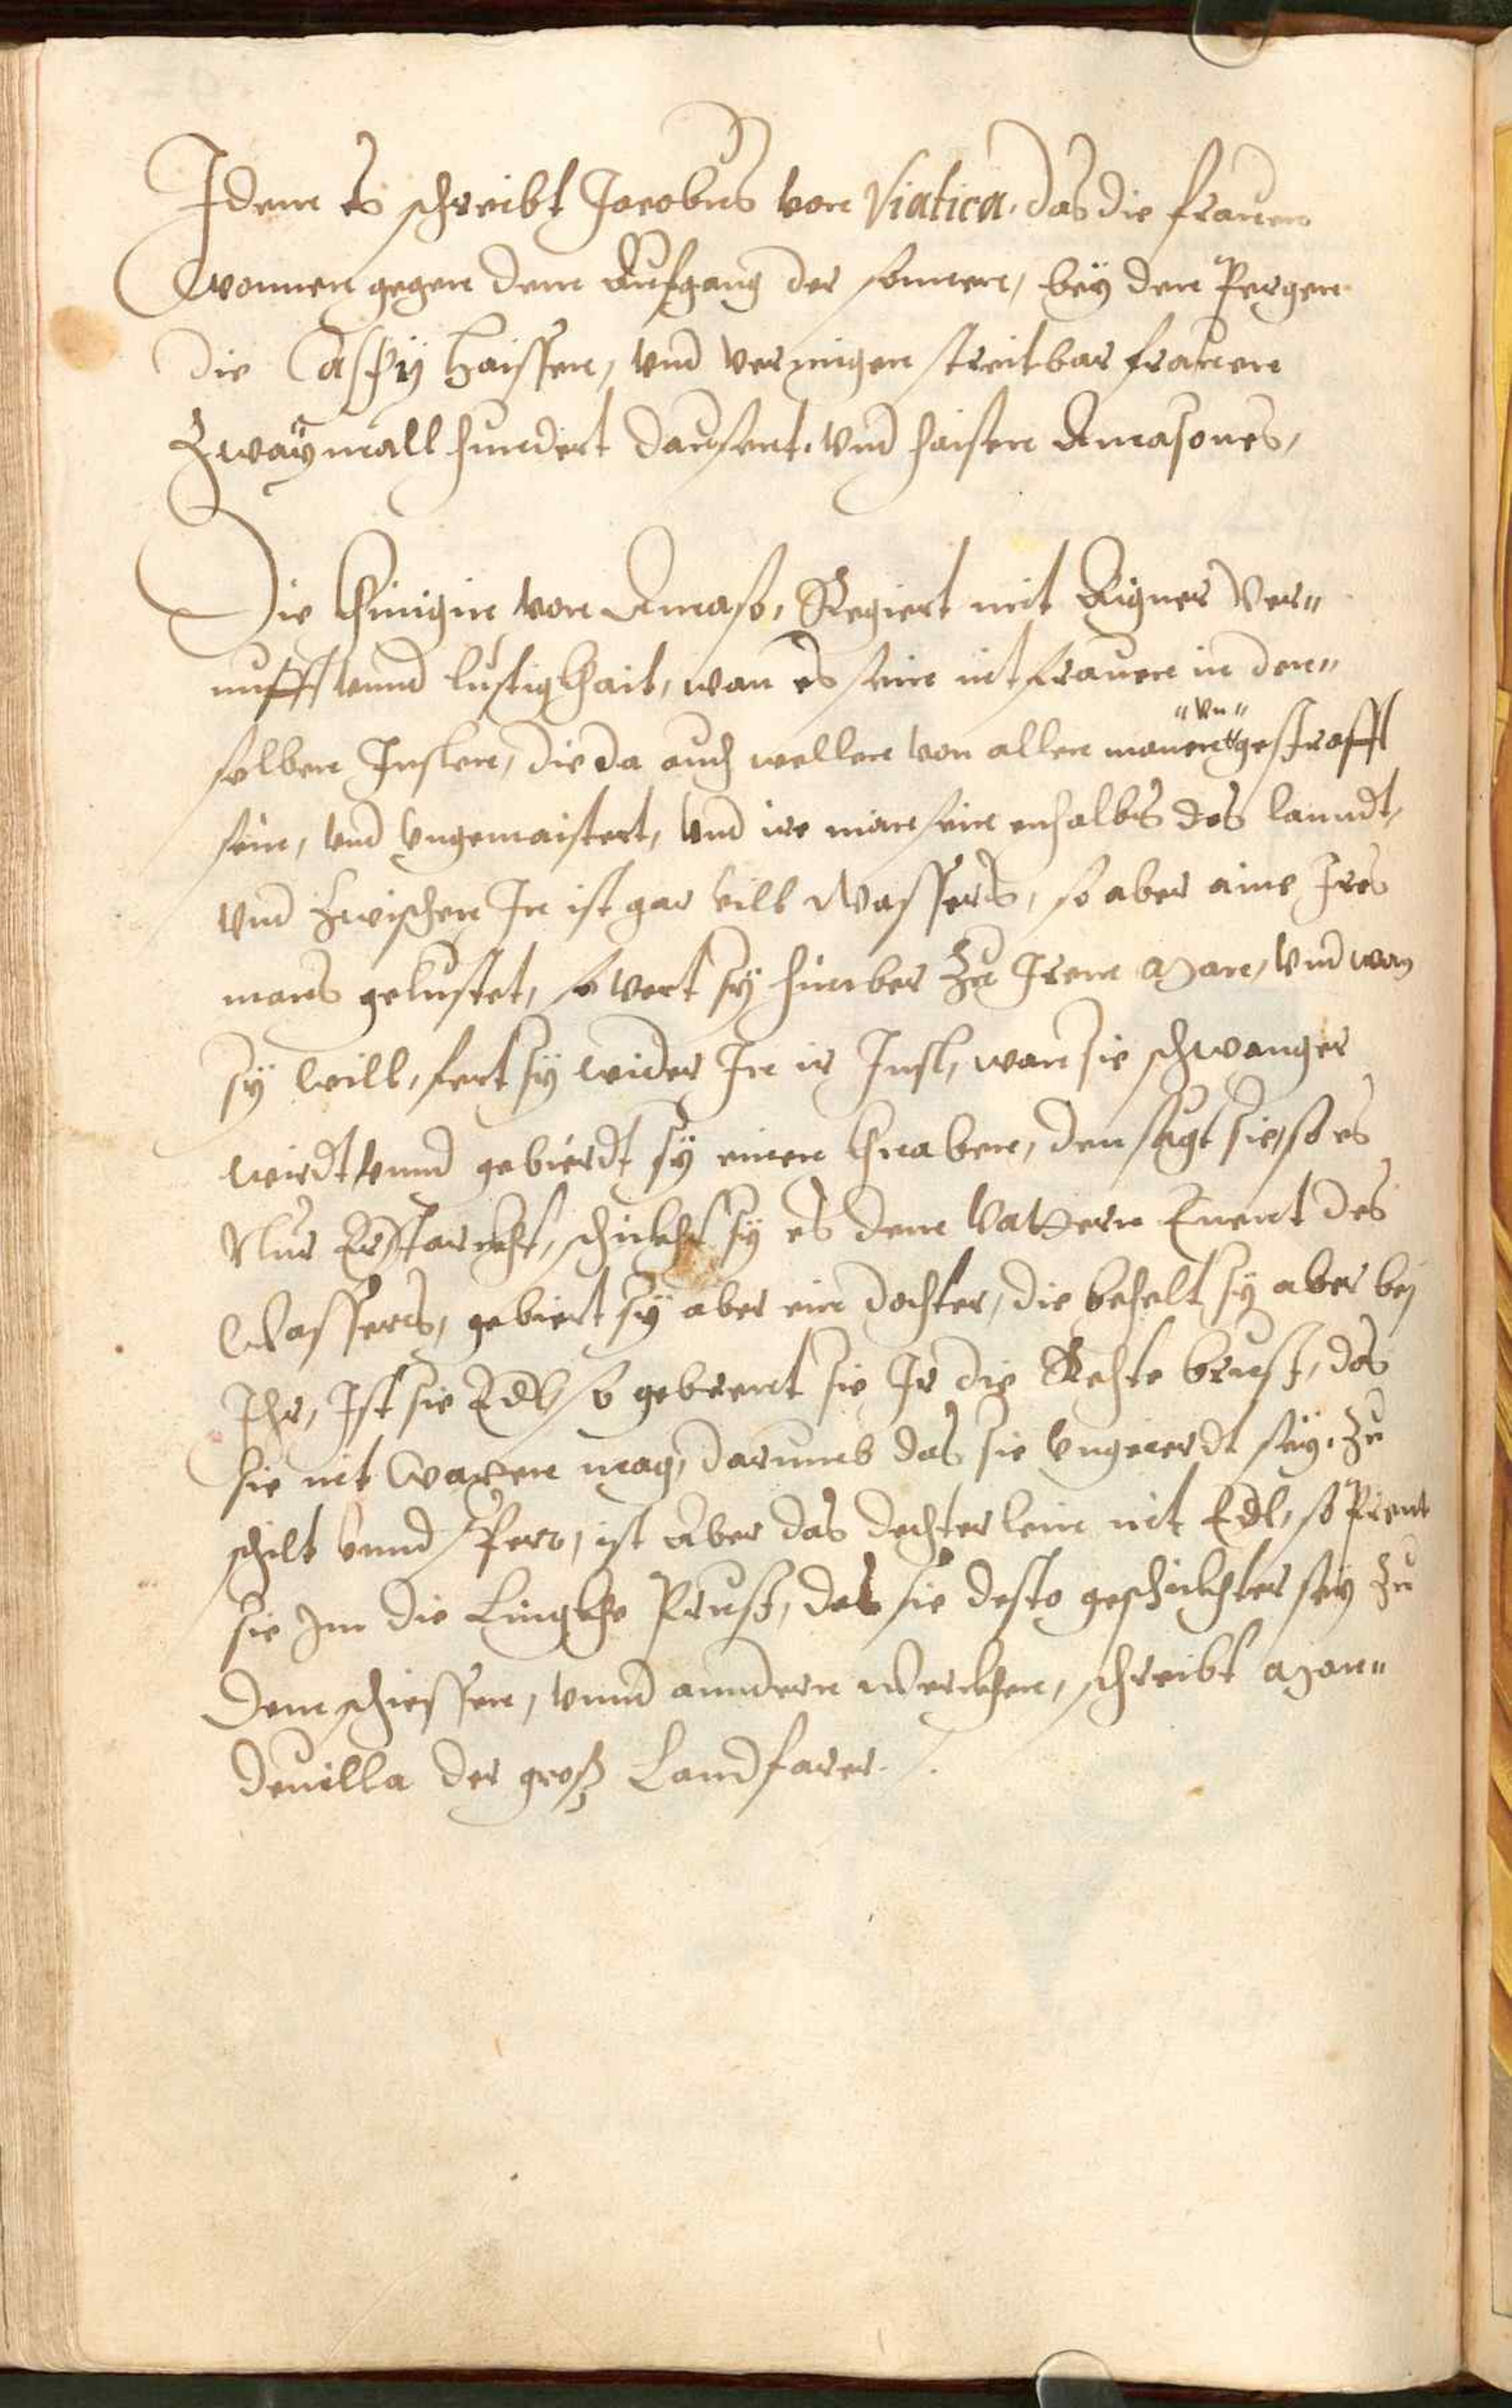 Idem es schreibt Jacobus von Viatica, das die frauen
wonnen gegen dem Aufgang der sonnen, bey den Pergen
die Caspij haissen, vnd vermigen streitbar frauen
Zwaymall hundert dausent, vnd haisen Amasones,
Die Khinigin von Amaso, Regiert mit Aigner Ver„
nufft vnnd lustigkhait, wan es sein nit frauen in den„
selben Inslen, die da auch wellen von allen manen "vn" gestrafft
sein, vnd vngemaistert, vnd ire man sein enhalbs des lanndt,
vnd Zwischen In ist gar vill Wassers, so aber aine Ires
mans gelustet, so vert sy hinüber Zu Irem Man, vnd wan
sy will, fert sy wider In ir Insl, wan sie schwanger
wirdt vnnd gebierdt sy einen Khnaben, den seugt sie, so es
Nur Erstarckht, schickht sy es dem Vattern Enent des
Wassers, gebiert sy aber ein dochter, die behelt sy aber bej
Ihr, Ist sie Edl, so gebrent sie Ir die Rechte brust, das
sie nit waxen mag, darumb das sie vngeierdt sey, Zu
schilt vnnd Sper, ist Aber das dechterlein nit Edl, so Prent
sie Im die Lingkhe Prust, das sie desto geschickhter sey Zu
dem schiessen, vnnd anndern Werckhen, schreibt Man„
deuilla der groß Landfarer.